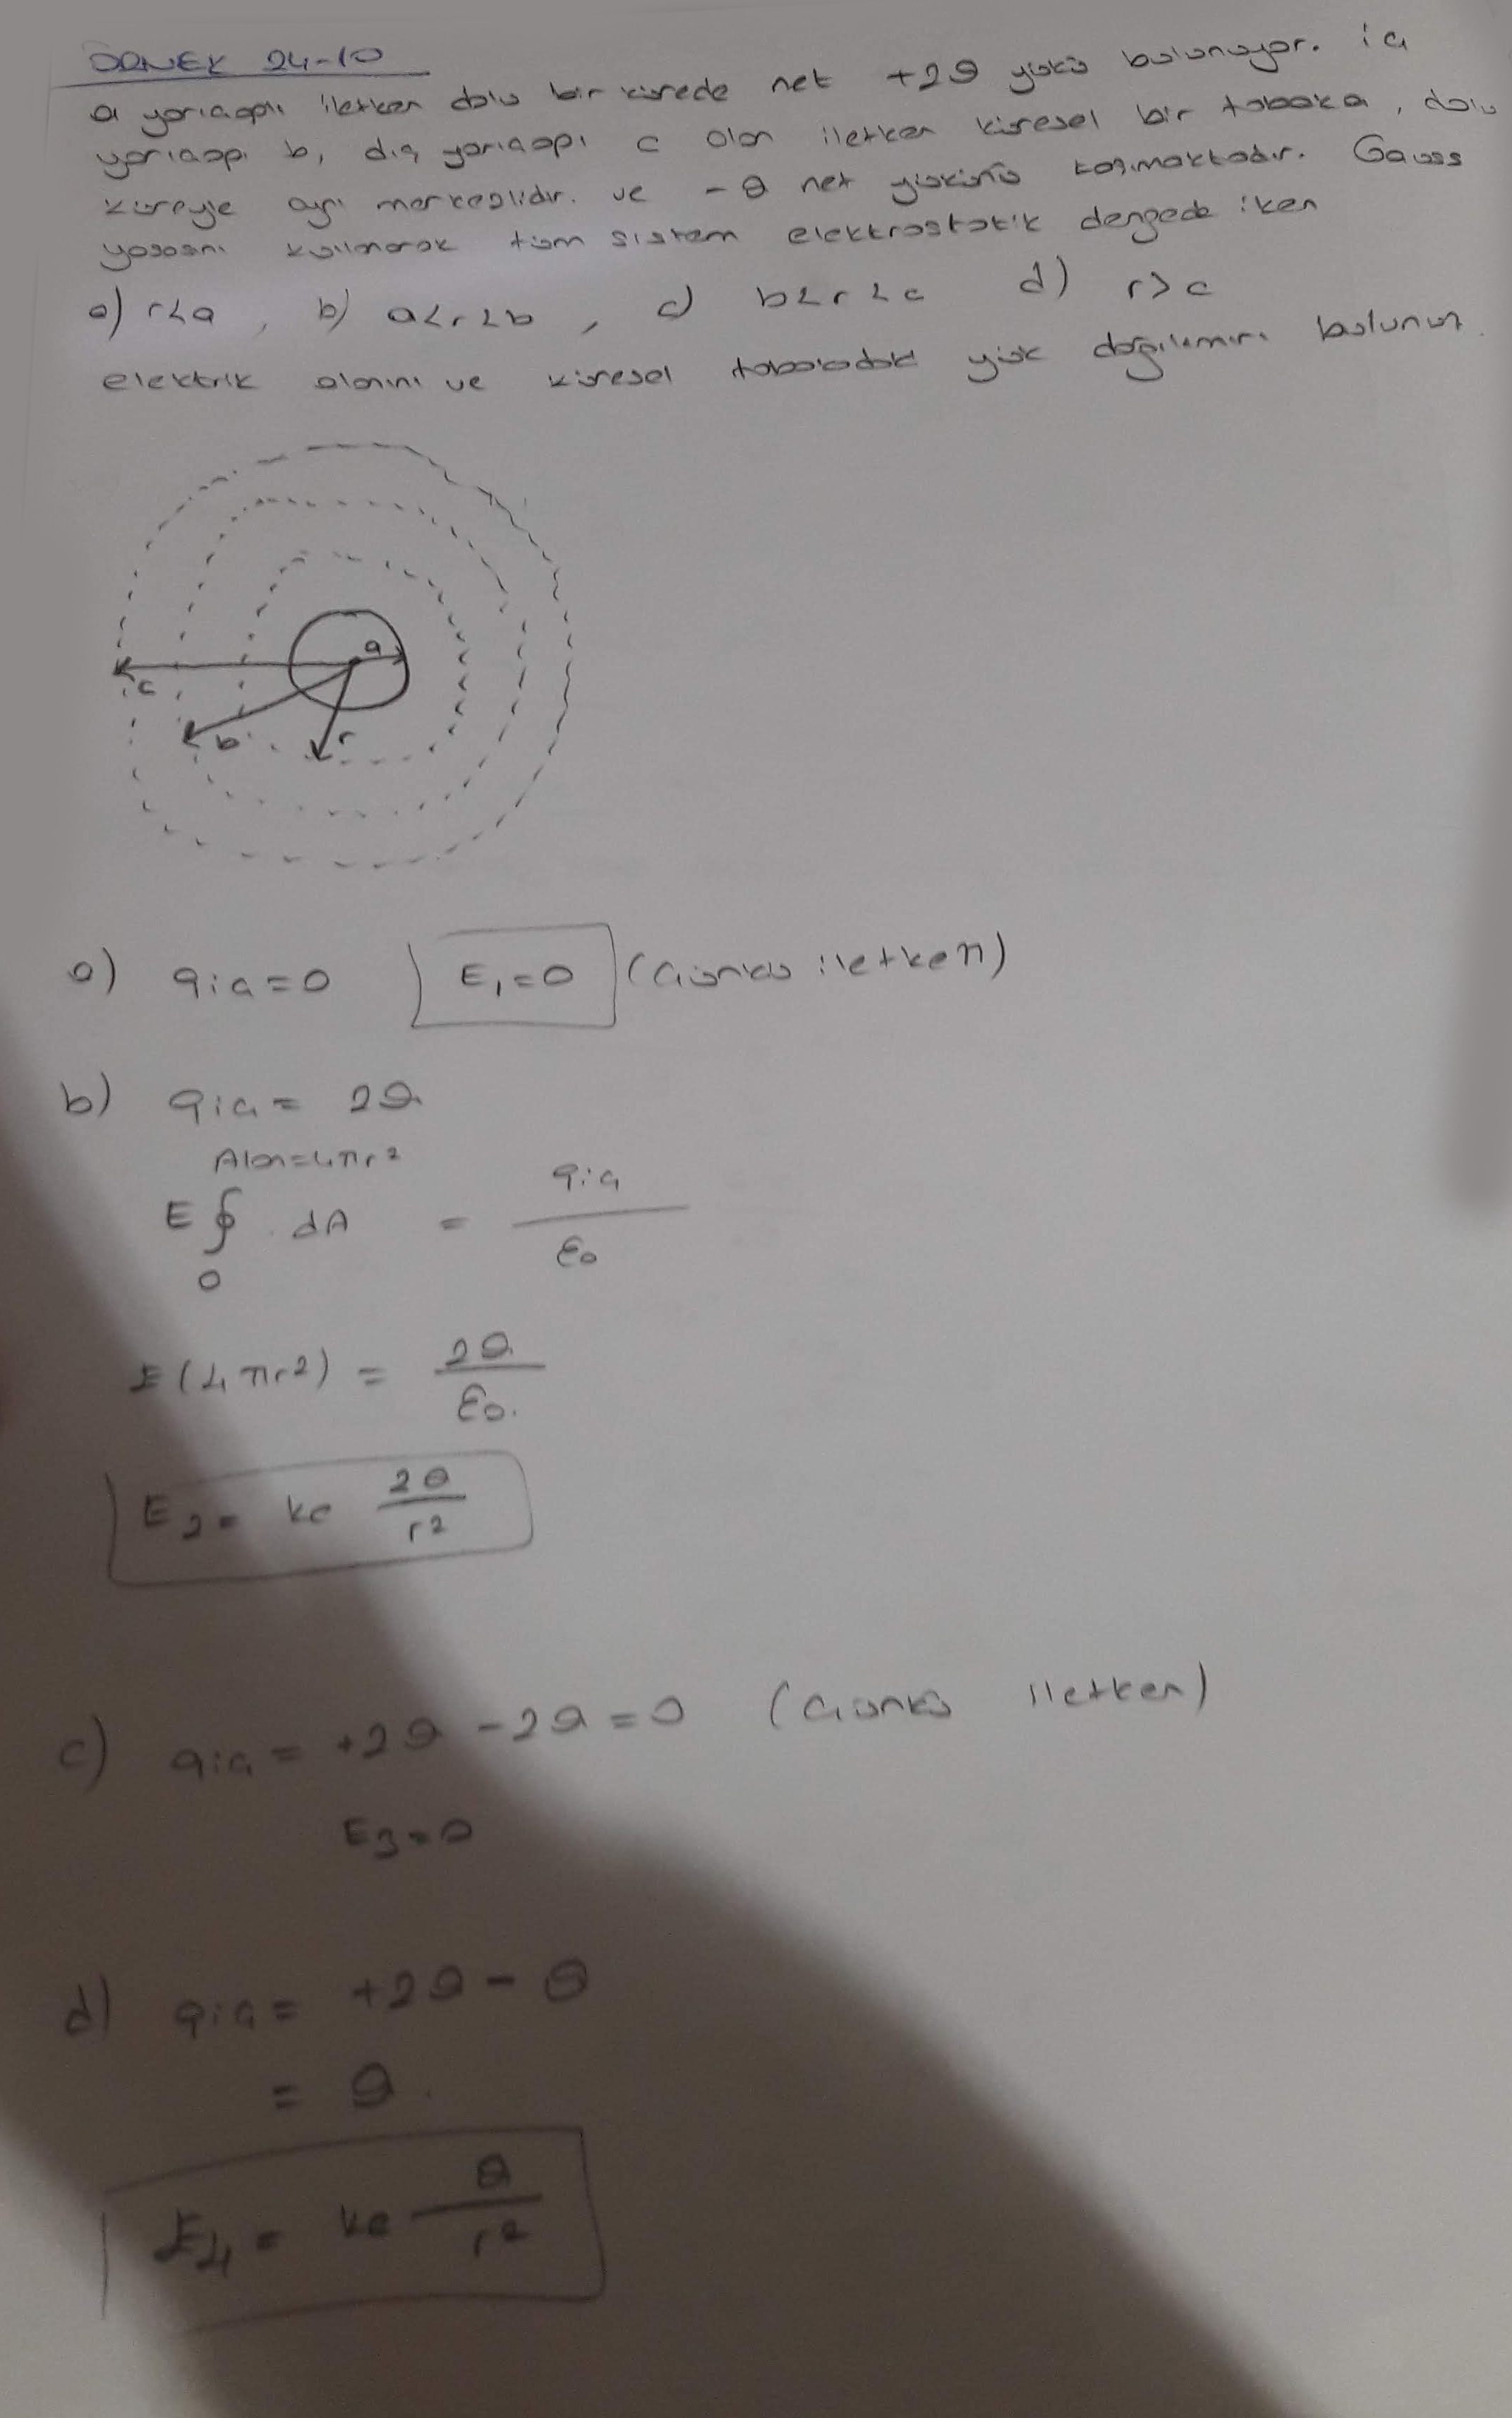 ÖRNEK 24-10
a yarıçaplı iletken dolu bir kürede net +2Q yükü bulunuyor. iç
yarıçapı b, dış yarıçapı c olan iletken küresel bir tabaka, dolu
küreyle aynı merkezlidir. ve -Q net yükünü taşımaktadır. Gauss
yasasını kullanarak tüm sistem elektrostatik dengede iken
a) r<a, b) a<r<b, c) b<r<c d) r>c
elektrik alanını ve küresel tabakadaki yük dağılımını bulunuz.
a
c
b
r
a) qiç=0 E₁=0 (Çünkü iletken)
b) qiç= 2Q
Alan=4πr²
E ∮ dA = qiç / ε₀
0
E(4πr²) = 2Q / ε₀.
E₂= ke 2Q / r²
c) qiç= +2Q -2Q=0 (Çünkü iletken)
E3=0
d) qiç= +2Q-Q
= Q.
E4= ke Q / r²